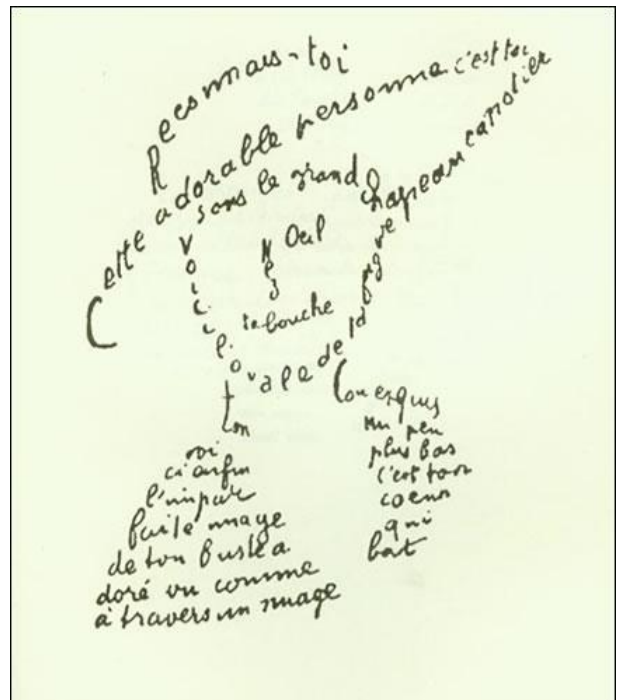 Reconnais-toi
Cette adorable personne c'est toi
sous le grand chapeau canotier
Oeil
Nez
ta bouche
Voici l'ovale de ta figure
ton
Cou exquis
voi
ci enfin
l'impar
faite image
de ton buste a
doré vu comme
à travers un nuage
un peu
plus bas
c'est ton
coeur
qui
bat